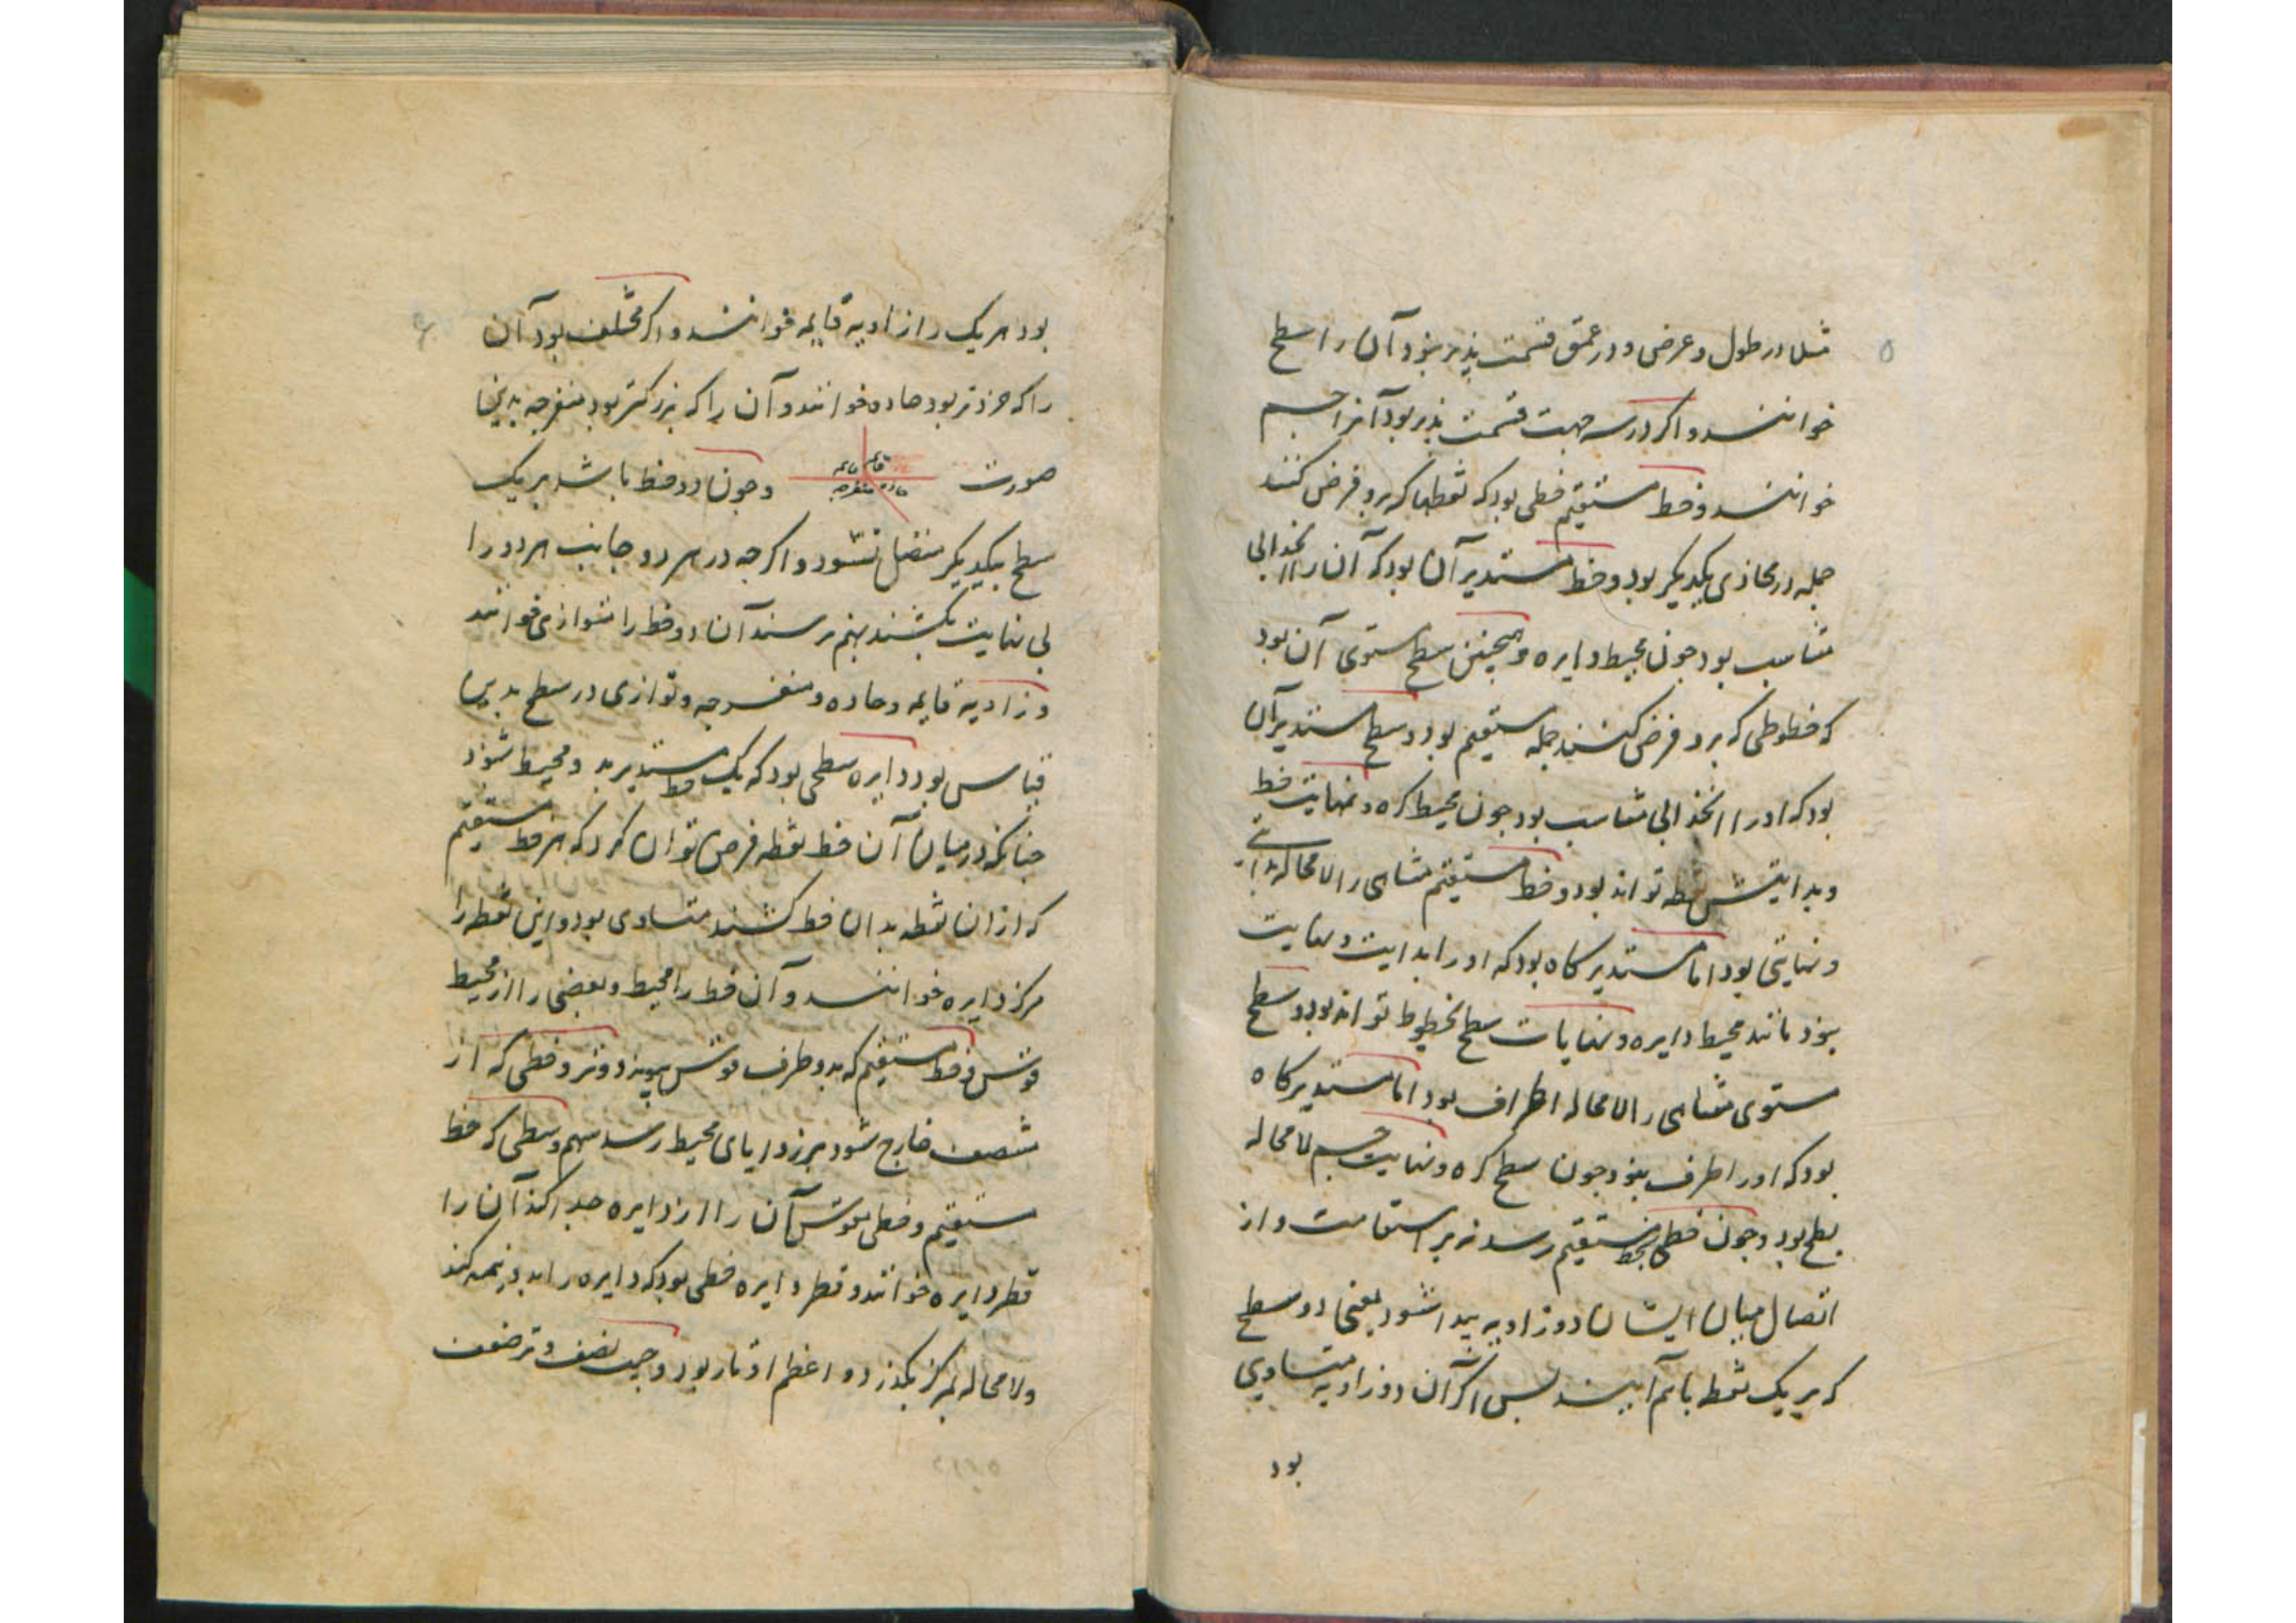 ۵
مثلا در طول و عرض و در عمق قسمت پذیر نبود آن را سطح
خوانند و اگر در سه جهت قسمت پذیر بود آنرا جسم
خوانند و خط مستقیم خطی بود که نقطها که برو فرض کنند
جمله در محاذی یکدیگر بود و خط مستدیر آن بود که آن را انحدابی
متناسب بود چون محیط دایره و همچنین سطح مستوی آن بود
که خطوطی که برو فرض کنند جمله مستقیم بود و سطح مستدیر آن
بود که او را انحدابی متناسب بود چون محیط کره و نهایت خط
و بدایتش نقطه تواند بود و خط مستقیم متناهی را لامحاله بدایتی
و نهایتی بود اما مستدیر گاه بود که او را بدایت و نهایت
نبود مانند محیط دایره و نهایات سطح خطوط تواند بود و سطح
مستوی متناهی را لامحاله اطراف بود اما مستدیر گاه
بود که او را طرف نبود چون سطح کره و نهایت جسم لامحاله
سطح بود و چون خطی بخط مستقیم رسد نه بر استقامت و از
اتصال میان ایشان دو زاویه پیدا شود یعنی دو سطح
که بر یک نقطه باهم آیند پس اگر آن دو زاویه متساوی
بود
بود هر یک را زاویه قایمه خوانند و اگر مختلف بود آن
را که خردتر بود حاده خوانند و آن را که بزرگتر بود منفرجه بدین
صورت قائمه قائمه حاده منفرجه و چون دو خط باشد بر یک
سطح بیکدیگر متصل نشود و اگرچه در هر دو جانب هر دو را
بی نهایت بکشند بهم نرسند آن دو خط را متوازی خوانند
و زاویه قایمه و حاده و منفرجه و توازی در سطح بدین
قیاس بود دایره سطحی بود که یک خط مستدیر بدو محیط شود
چنانکه در میان آن خط نقطه فرض توان کرد که هر خط مستقیم
که از ان نقطه بدان خط کشند متساوی بود و این نقطه را
مرکز دایره خوانند و آن خط را محیط و بعضی را از محیط
قوس و خط مستقیم که بدو طرف قوس پیوندد وتر و خطی که از
منتصف خارج شود بر زوایای محیط رسد سهم و سطحی که خط
مستقیم و خطی مقوس آن را از دایره جدا کند آن را
قطر دایره خوانند و قطر دایره خطی بود که دایره را بدو نیمه کند
ولامحاله بمرکز بگذرد و اعظم اوتار بود و جیب نصف وتر ضعف